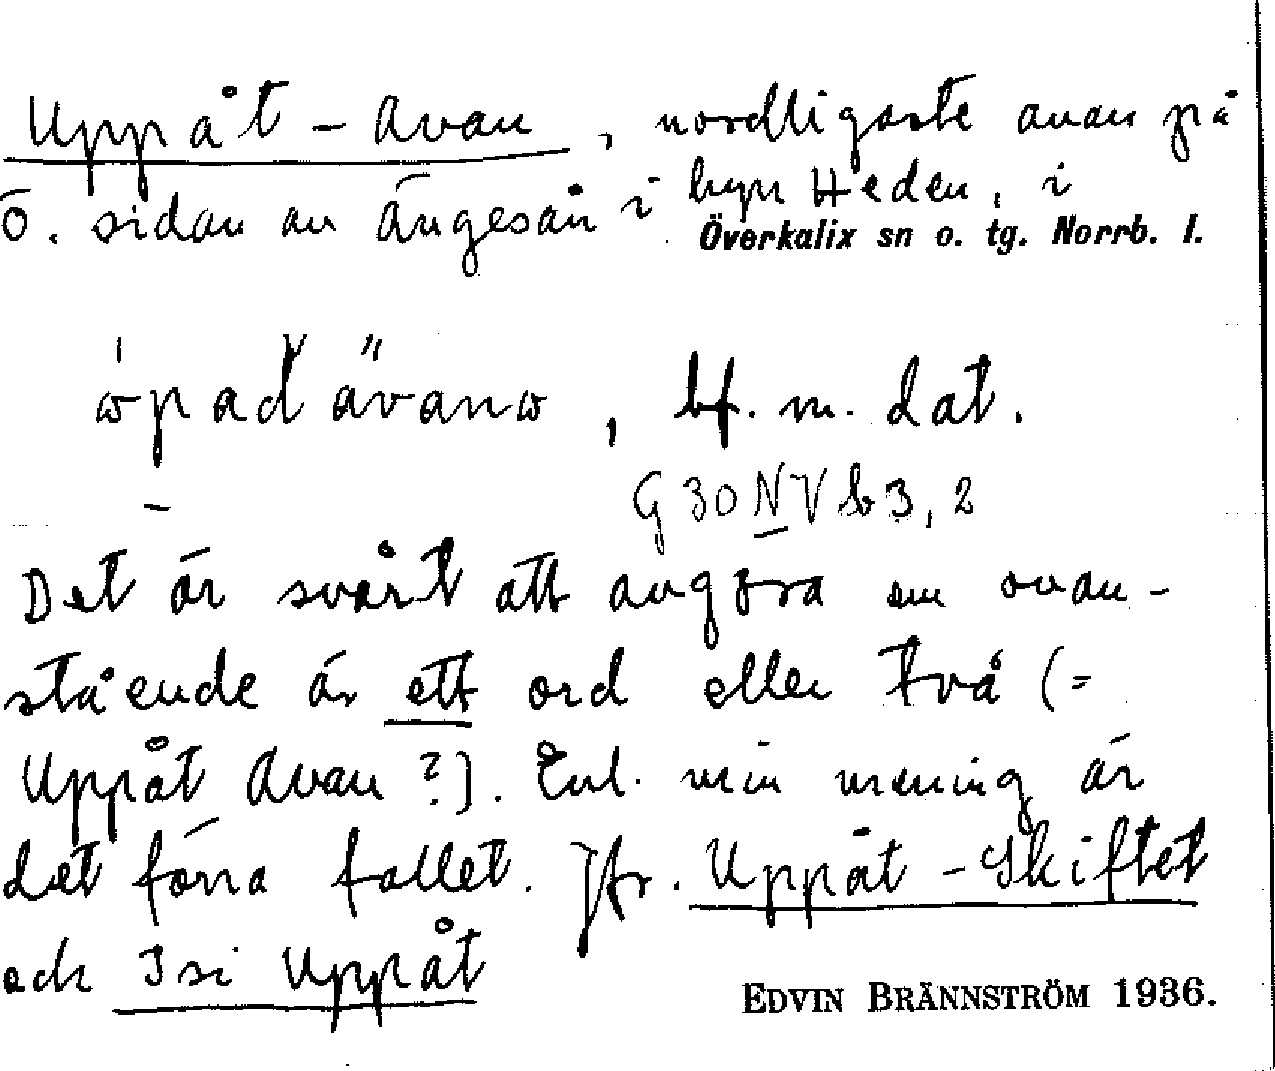 Uppåt-Avan, nordligaste avan på
ö. sidan av Ängesån i byn Heden, i
Överkalix sn o. tg. Norrb. l.
bf. m. dat.
G 30 N V b 3, 2
Det är svårt att avgöra om ovan-
stående är ett ord eller två (=
Uppåt Avan?). Enl. min mening är
det förra fallet. Jfr. Uppåt-Skiftet
och Isi Uppåt
EDVIN BRÄNNSTRÖM 1936.